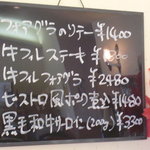 フォアグラのソテー ¥1400
牛フィレステーキ ¥1800
牛フィレフォアグラ ¥2480
ビストロ風ホワ煮込 ¥1480
黒毛和牛サーロイン(200g) ¥3300